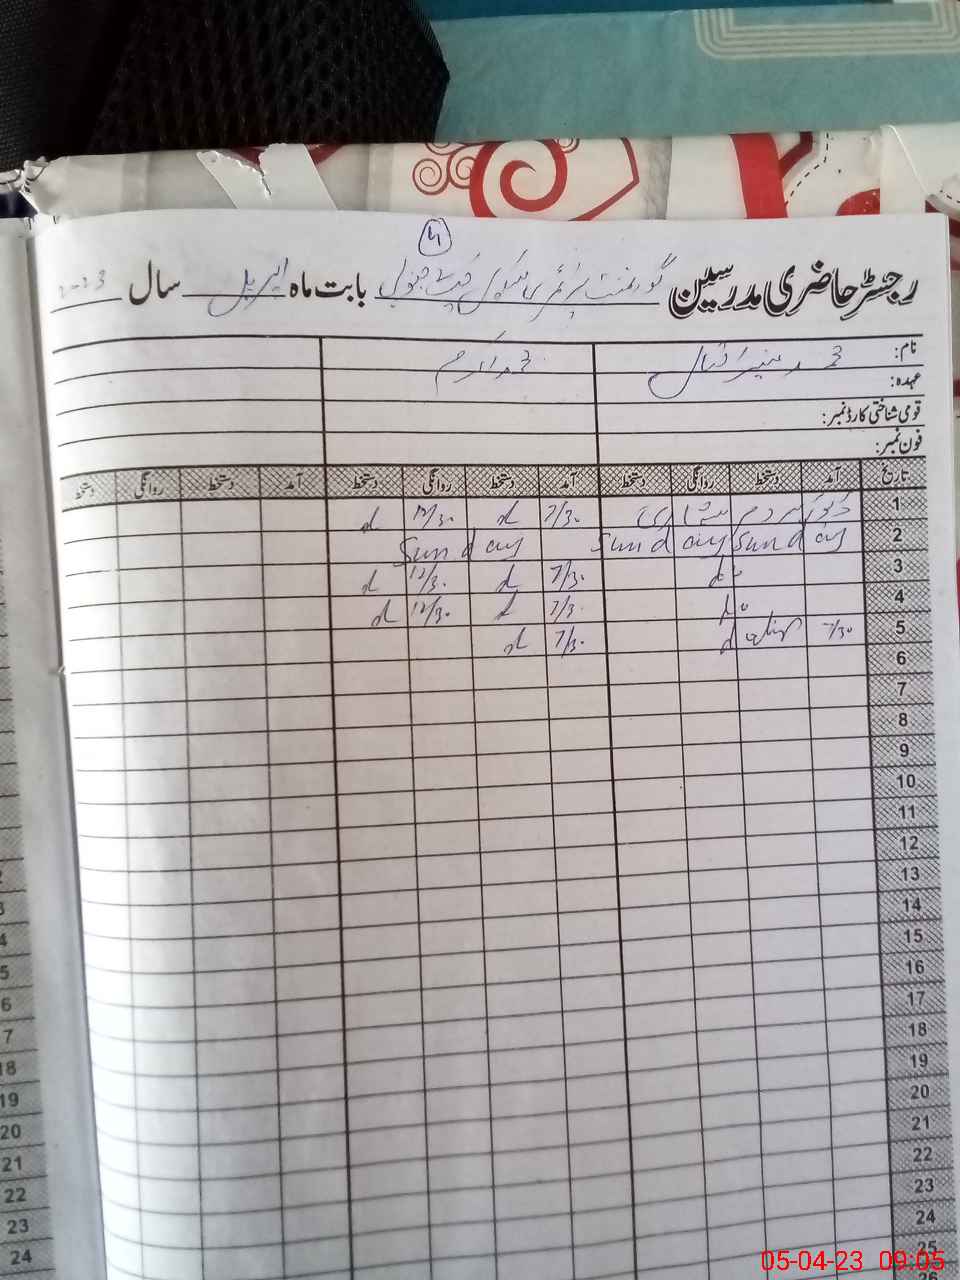 4
رجسٹر حاضری مدرسین گورنمنٹ پرائمری سکول بابت ماہ اپریل سال 2023
نام: محمد اکرم
عہدہ:
قومی شناختی کارڈ نمبر:
فون نمبر:
تاریخ آمد دستخط روانگی دستخط آمد دستخط روانگی دستخط آمد دستخط روانگی دستخط
1 مردم شماری 7/30 12/30
2 Sunday Sunday Sunday
3 do 7/30 12/30
4 do 7/30 12/30
5 7/30 7/30
6
7
8
9
10
11
12
13
14
15
16
17
18
19
20
21
22
23
24
25
18
19
20
21
22
23
24
05-04-23 09:05